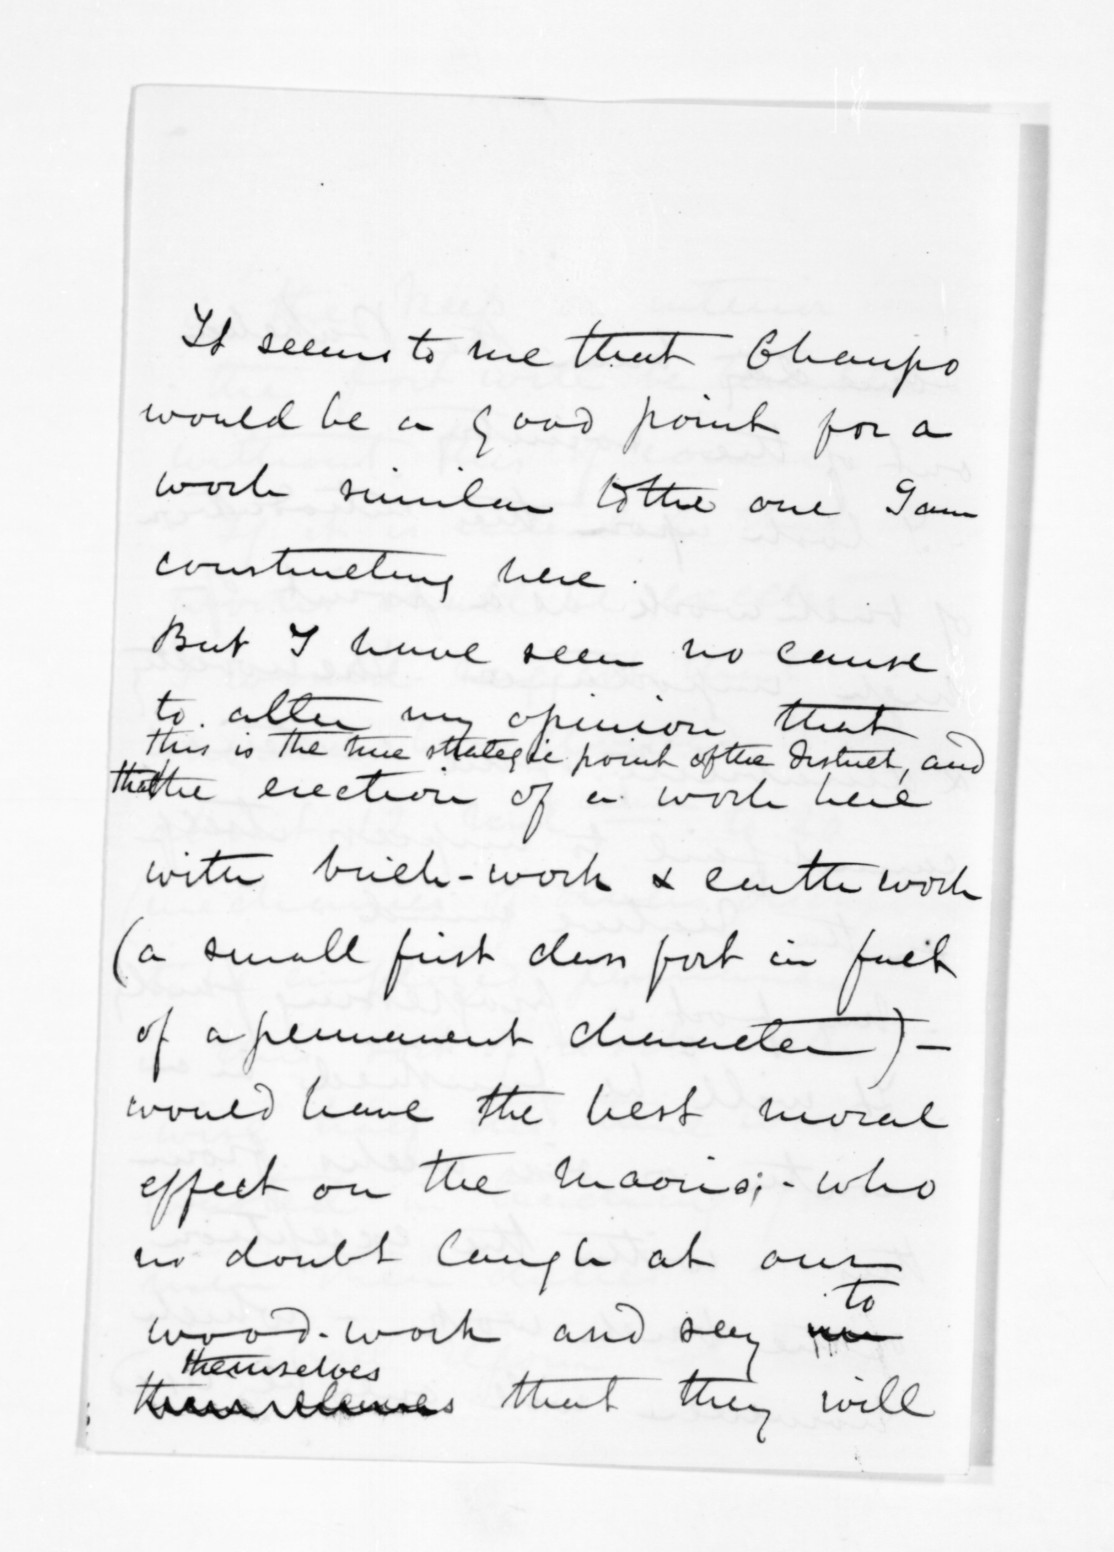 It seems to me that Ohaupo
would be a good point for a
work similar to the one I am
constructing here.
But I have seen no cause
to alter my opinion that
this is the true strategic point of the District, and
that the erection of a work here
with brick-work & earth work
(a small first class fort in fact
of a permanent character) -
would have the best moral
effect on the Maoris; - who
no doubt laugh at our
to
wood-work and say
themselves
themselves that they will